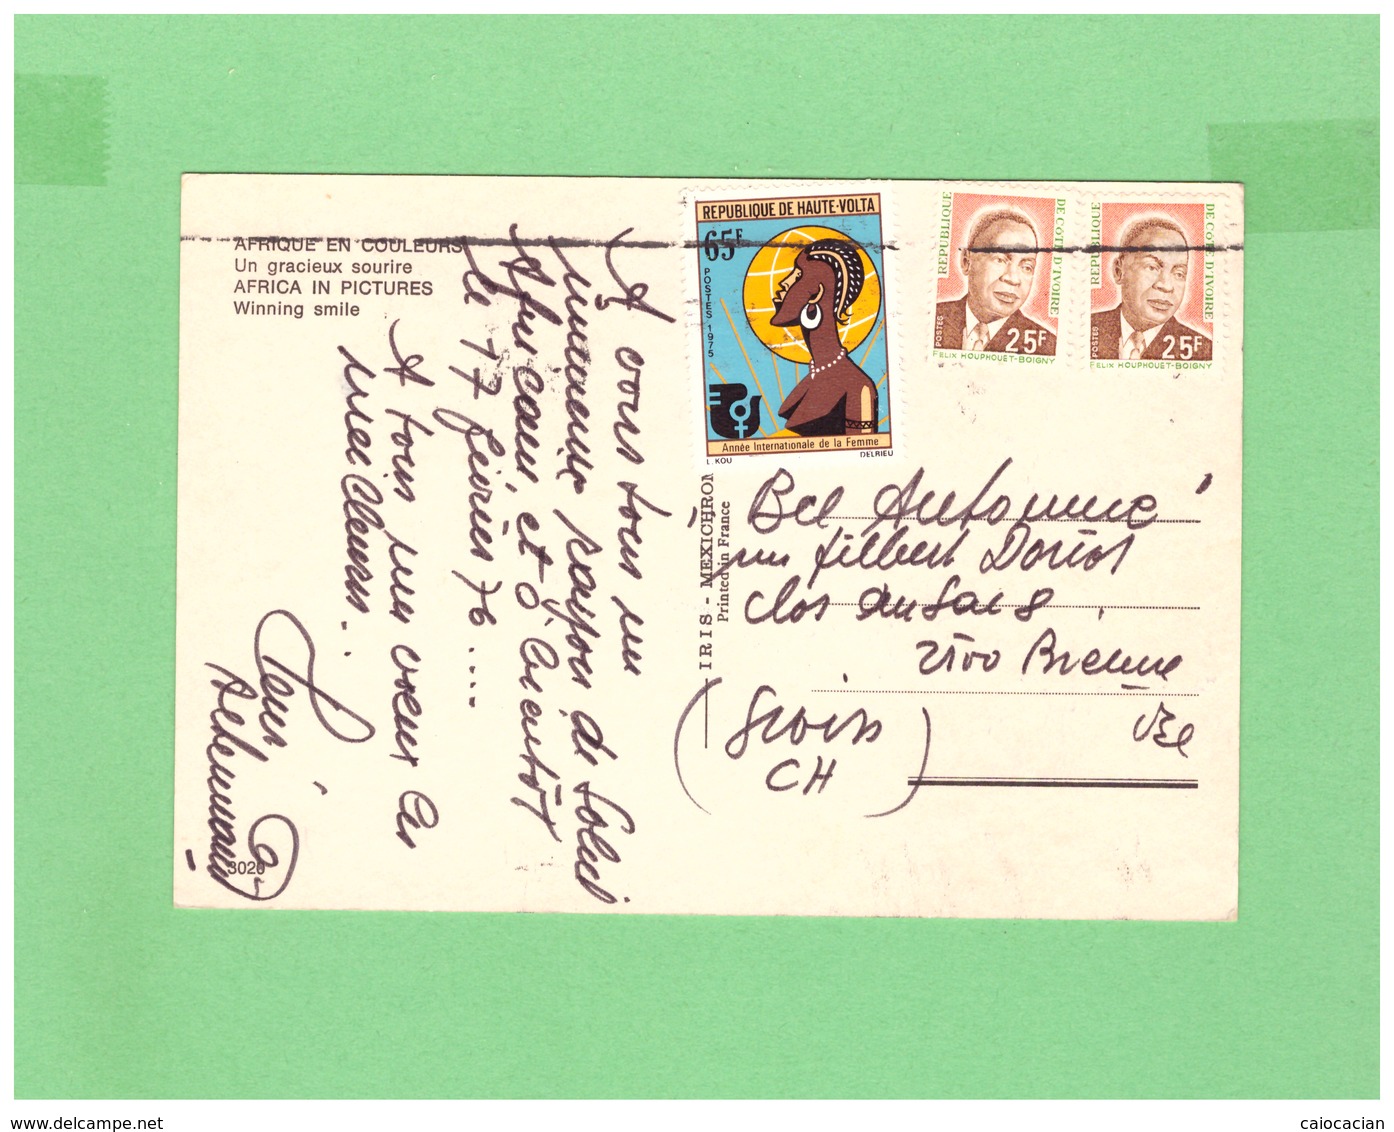 AFRIQUE EN COULEURS
Un gracieux sourire
AFRICA IN PICTURES
Winning smile
A vous tous un
rayon de Soleil
Affec et à bientôt
le 17 février 76....
A tous mes vœux les
meilleurs.
3020
IRIS - MEXICHROM
Printed in France
REPUBLIQUE DE HAUTE-VOLTA
65F
POSTES 1975
Année Internationale de la Femme
L. KOU
DELRIEU
REPUBLIQUE DE COTE D'IVOIRE
POSTES
25F
FELIX HOUPHOUET-BOIGNY
REPUBLIQUE DE COTE D'IVOIRE
POSTES
25F
FELIX HOUPHOUET-BOIGNY
"Bel Automne"
Doriot
Clos
2500 Bienne
(
CH )
www.delcampe.net
caiocacian